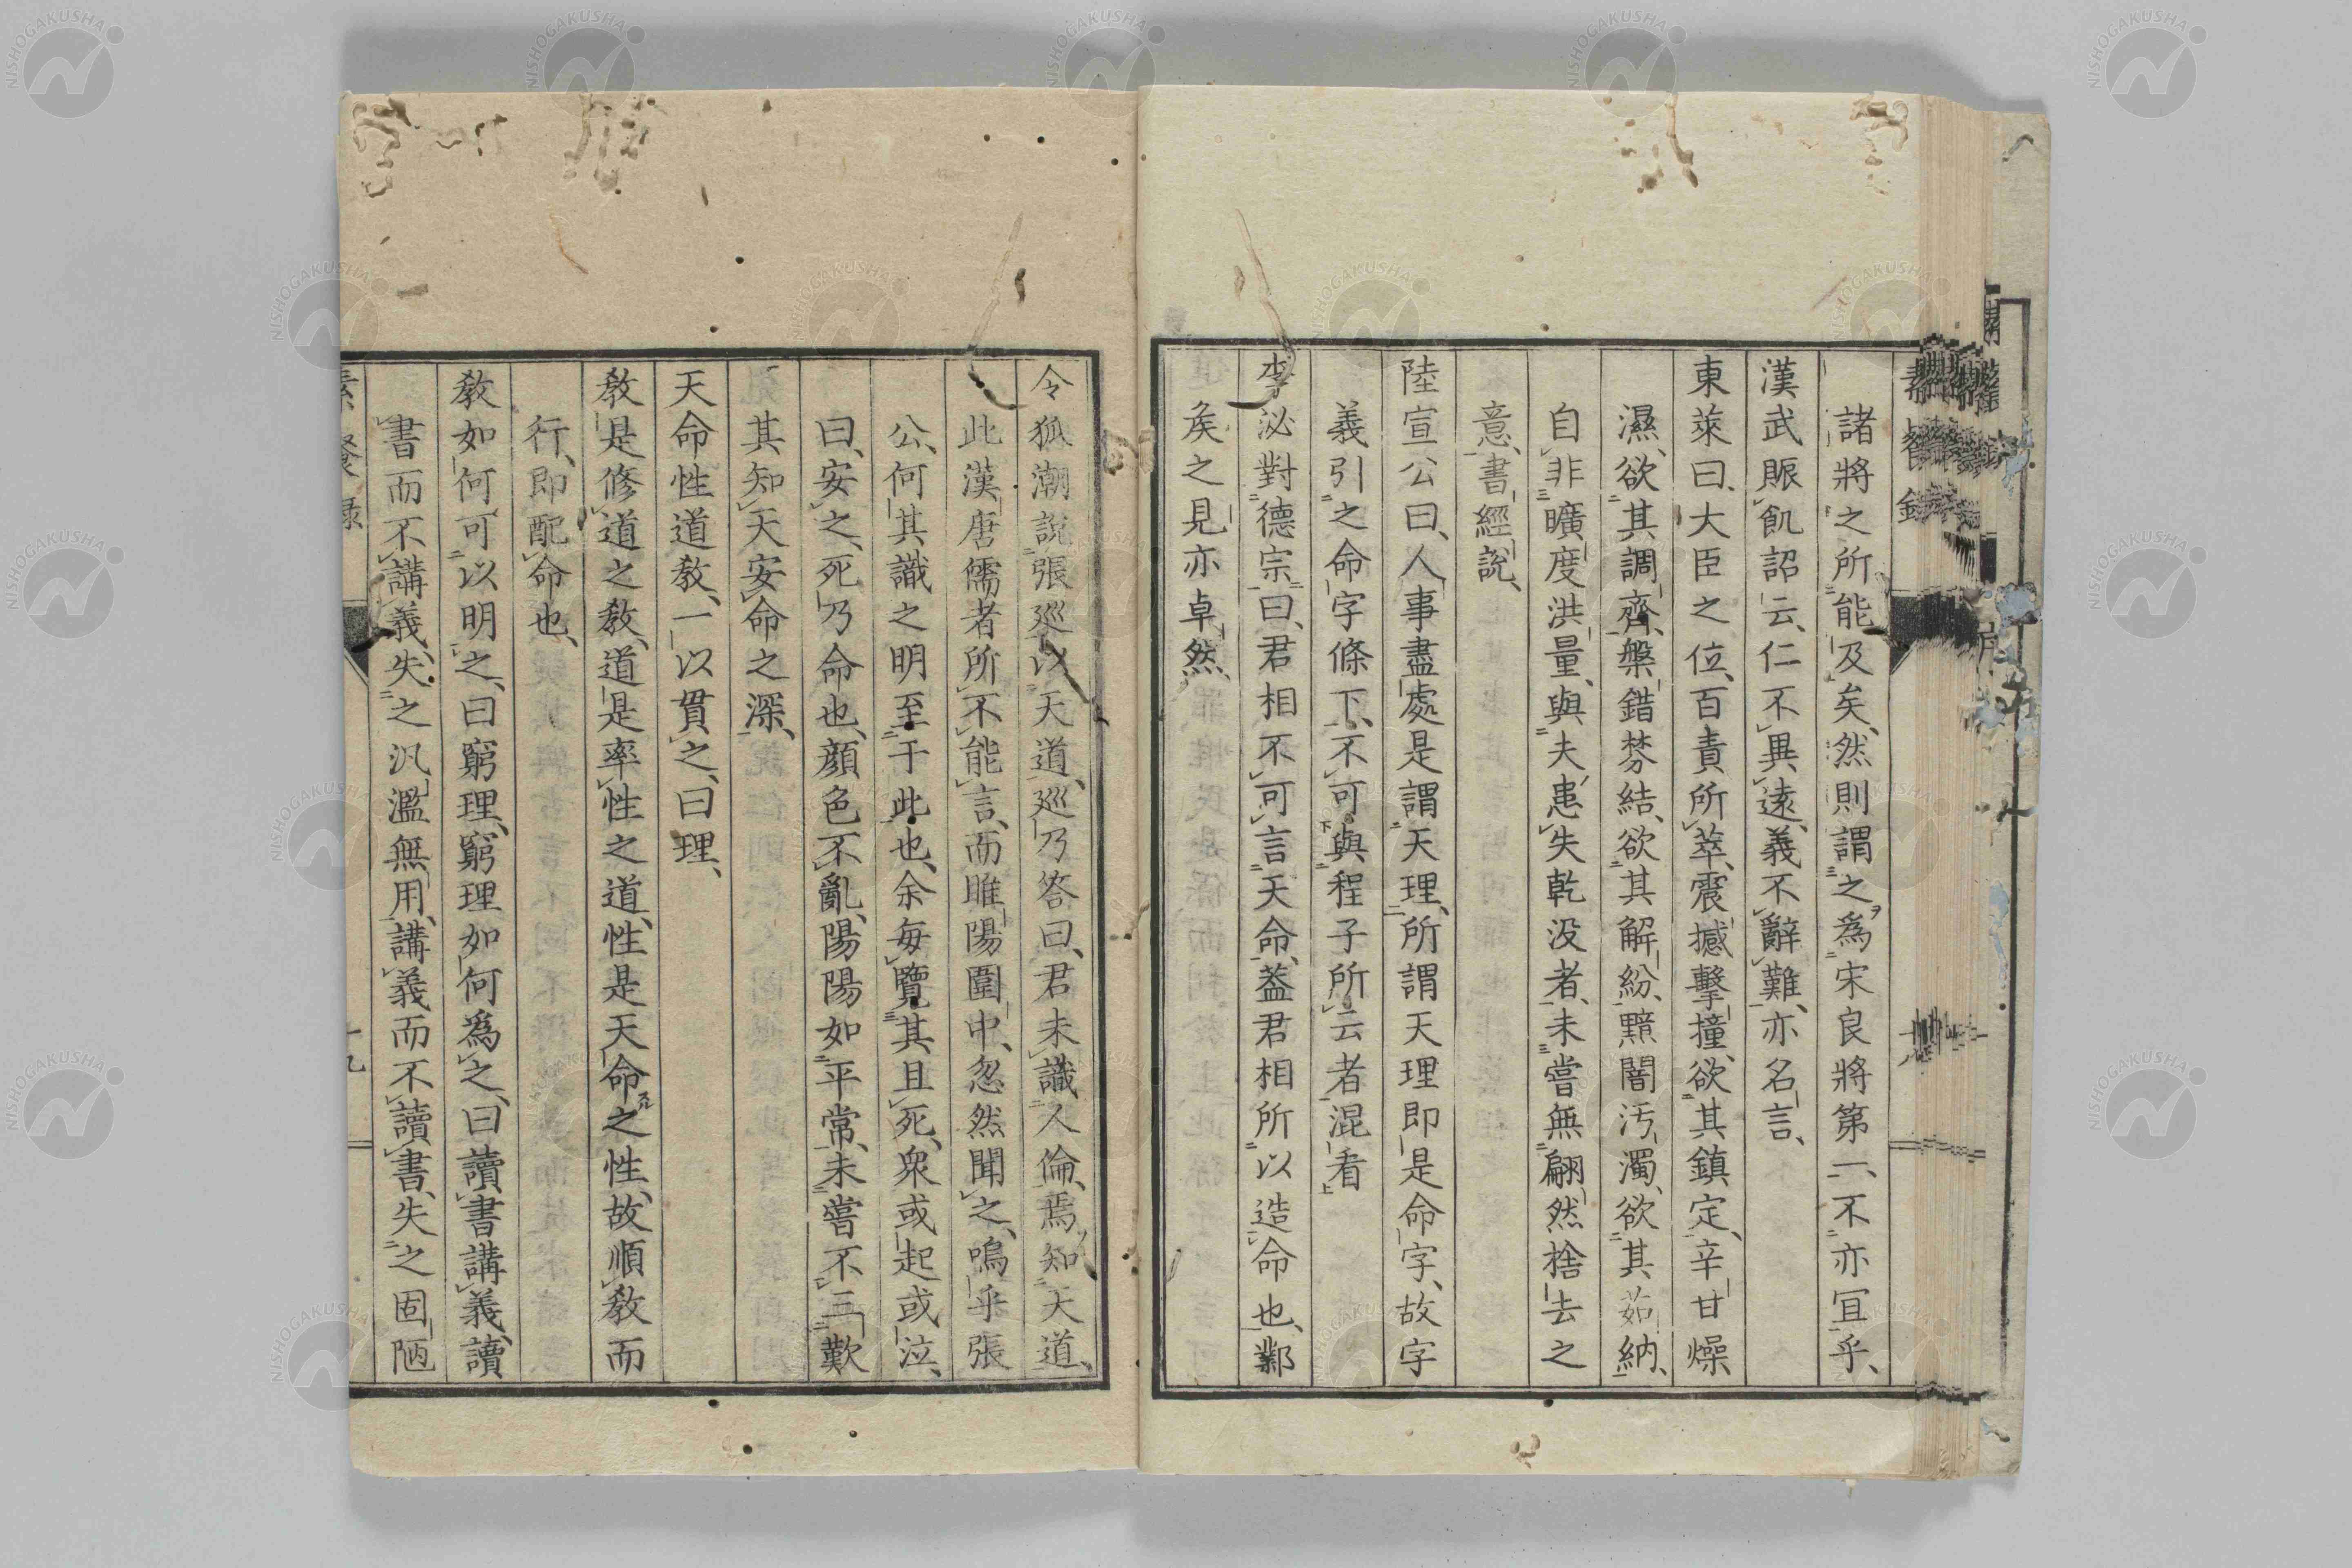 諸將之所能及矣、然則謂之爲宋良將第一、不亦宜乎、
漢武賑飢詔云、仁不異遠、義不辭難、亦名言、
東萊曰、大臣之位、百責所萃、震撼擊撞、欲其鎮定、辛甘燥
濕、欲其調齊、槃錯棼結、欲其解紛、黯闇汚濁、欲其茹納、
自非曠度洪量、與夫患失乾没者、未嘗無翩然捨去之
意、書經說、
陸宣公曰、人事盡處是謂天理、所謂天理即是命字、故字
義引之命字條下、不可與程子所云者混看
李泌對德宗曰、君相不可言天命、蓋君相所以造命也、鄴
矦之見亦卓然、
令狐潮說張巡以天道、巡乃答曰、君未識人倫、焉知天道、
此漢唐儒者所不能言、而睢陽圍中、忽然聞之、嗚乎張
公、何其識之明至于此也、余每覽其且死、衆或起或泣、
曰、安之、死乃命也、顔色不亂、陽陽如平常、未嘗不三歎
其知天安命之深、
天命性道教、一以貫之、曰理、
教是修道之教、道是率性之道、性是天命之性、故順教而
行、即配命也、
教如何可以明之、曰窮理、窮理如何爲之、曰讀書講義、讀
書而不講義、失之汎濫無用、講義而不讀書、失之固陋
十九
NISHOGAKUSHA